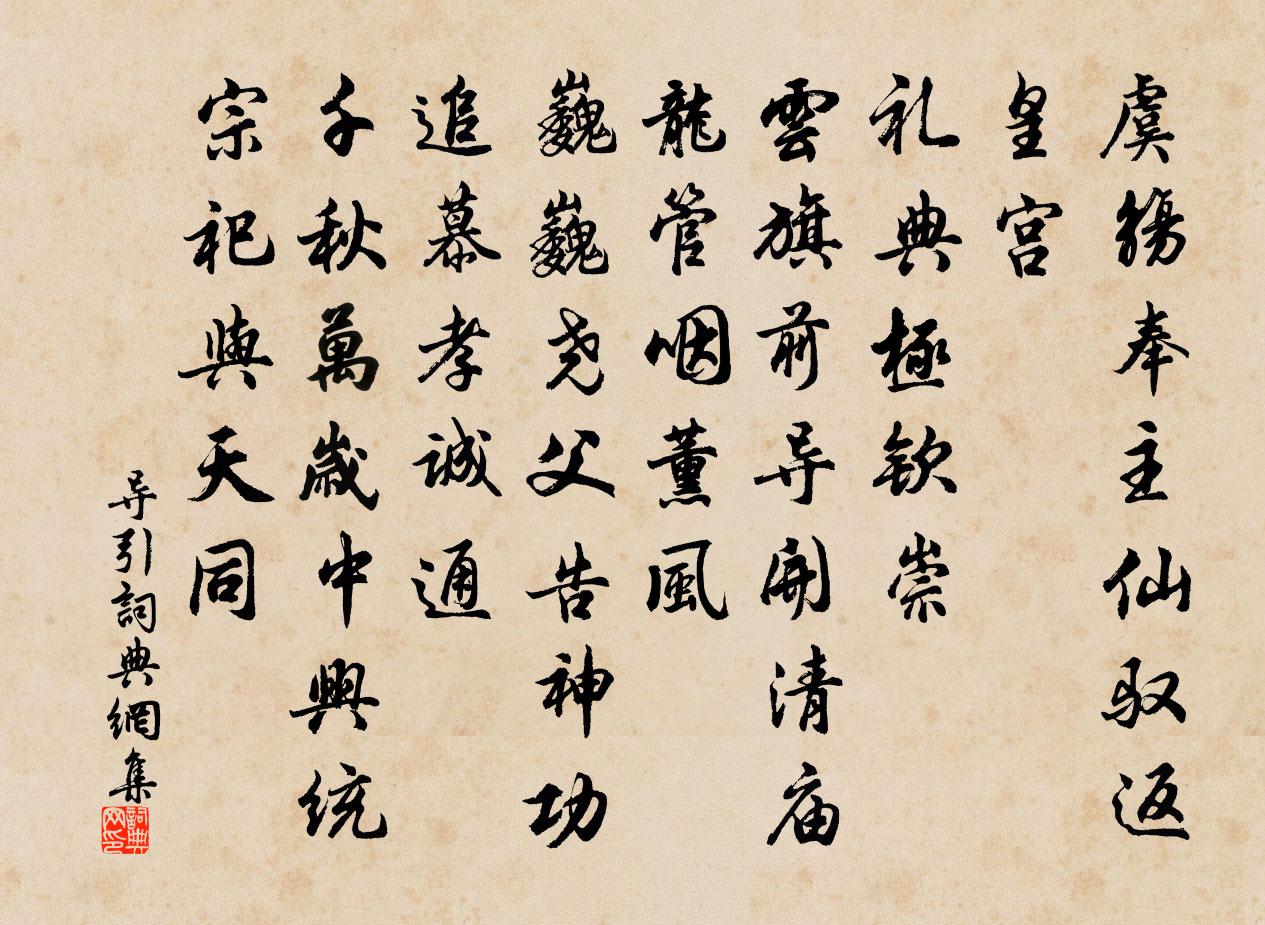 虞觴奉主仙驭返
皇宫
礼典極欽崇
雲旗前导開清庙
龍管咽薰風
巍巍尧父告神功
追慕孝誠通
千秋萬歲中興統
宗祀與天同
导引詞典網集
詞典网印